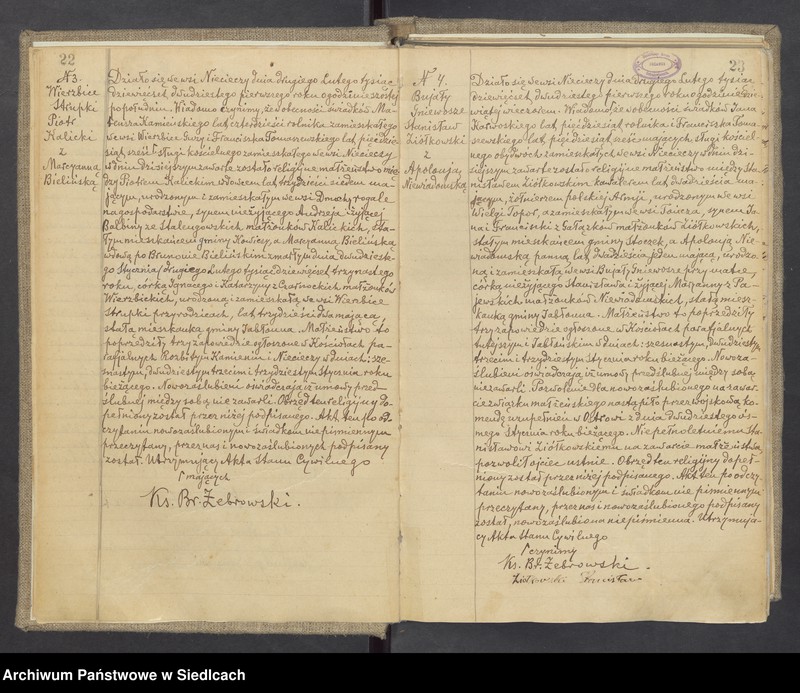 22
N 3.
Wierzbice
Strupki
Piotr
Kalicki
z
Maryanną
Bielińską
Działo się we wsi Niecieczy dnia drugiego Lutego tysiąc
dziewięćset dwudziestego pierwszego roku o godzinie szóstej
po południu. Wiadomo czynimy, że w obecności świadków Ma-
teusza Kamieńskiego lat czterdzieści rolnika zamieszkałego
we wsi Wierzbice Guzy i Franciszka Tomaszewskiego lat pięćdzie-
siąt sześć sługi kościelnego zamieszkałego we wsi Niecieczy
w dniu dzisiejszym zawarte zostało religijne małżeństwo mię-
dzy Piotrem Kalickim wdowcem lat trzydzieści siedem ma-
jącym, urodzonym i zamieszkałym we wsi Dmochy rogale
na gospodarstwie, synem nieżyjącego Andrzeja i żyjącej
Balbiny ze małżonków Kalickich, sta-
łym mieszkańcem gminy Kowiesy, a Maryanną Bielińską
wdową po Brunonie Bielińskim zmarłym dnia dwudzieste-
go Stycznia/drugiego Lutego tysiąc dziewięćset trzynastego
roku, córką Ignacego i Katarzyny z Czarnockich małżonków
Wierzbickich, urodzoną i zamieszkałą we wsi Wierzbice
Strupki przy rodzicach, lat trzydzieści dwa mającą,
stałą mieszkanką gminy Jabłonna. Małżeństwo to
poprzedziły trzy zapowiedzie ogłoszone w Kościołach pa-
rafjalnych Rozbitym Kamieniu i Niecieczy w dniach: sze-
snastym, dwudziestym trzecim i trzydziestym Stycznia roku
bieżącego. Nowozaślubieni oświadczają iż umowy przed-
ślubnej między sobą nie zawarli. Obrzęd ten religijny do-
pełniony został przez niżej podpisanego. Akt ten po od-
czytaniu nowozaślubionym i świadkom niepiśmiennym
przeczytany, przez nas i nowozaślubionych podpisany
został. Utrzymujący Akta Stanu Cywilnego
/ mających
Ks. Br. Żebrowski.
23
N 4.
Bujały
Gniewosze
Stanisław
Ziółkowski
z
Apolonją
Niewiadomską
Działo się we wsi Niecieczy dnia drugiego Lutego tysiąc
dziewięćset dwudziestego pierwszego roku o godzinie dzie-
wiątej wieczorem. Wiadomo, że w obecności świadków Jana
Karwoskiego lat pięćdziesiąt rolnika i Franciszka Toma-
szewskiego lat pięćdziesiąt sześć mających, sługi kościel-
nego obydwóch zamieszkałych we wsi Niecieczy w dniu dzi-
siejszym zawarte zostało religijne małżeństwo między Sta-
nisławem Ziółkowskim kawalerem lat dwadzieścia ma-
jącym, żołnierzem polskiej Armji, urodzonym we wsi
Wielgi Topór, a zamieszkałym we wsi Tończa, synem Ja-
na i Franciszki z małżonków Ziółkowskich,
stałym mieszkańcem gminy Stoczek, a Apolonją Nie-
wiadomską panną lat dwadzieścia jeden mającą, urodzo-
ną i zamieszkałą we wsi Bujały Gniewosze przy matce,
córką nieżyjącego Stanisława i żyjącej Maryanny z Pa-
jewskich małżonków Niewiadomskich, stałą miesz-
kanką gminy Jabłonna. Małżeństwo to poprzedziły
trzy zapowiedzie ogłoszone w Kościołach parafjalnych
tutejszym i Jabłońskim w dniach: szesnastym, dwudziestym
trzecim i trzydziestym Stycznia roku bieżącego. Nowoza-
ślubieni oświadczają iż umowy przedślubnej między sobą
nie zawarli. Pozwolenie dla nowozaślubionego na zawar-
cie związku małżeńskiego nastąpiło przez wojskową ko-
mendę uzupełnień w Ostrowi z dnia dwudziestego ós-
mego Stycznia roku bieżącego. Niepełnoletniemu Sta-
nisławowi Ziółkowskiemu na zawarcie małżeństwa
pozwolił ojciec ustnie. Obrzęd ten religijny dopeł-
niony został przez niżej podpisanego. Akt ten po odczy-
taniu nowozaślubionym i świadkom niepiśmiennym
przeczytany, przez nas i nowozaślubionego podpisany
został, nowozaślubiona niepiśmienna. Utrzymują-
cy Akta Stanu Cywilnego
/ czynimy
Ks. Br. Żebrowski.
Ziółkowski Stanisław
Archiwum Państwowe w Siedlcach